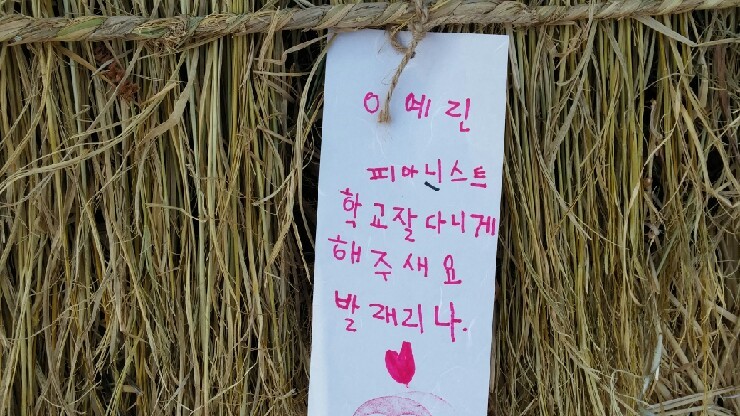 이예린
피아니스트
학교잘다니게
해주새요
발래리나.